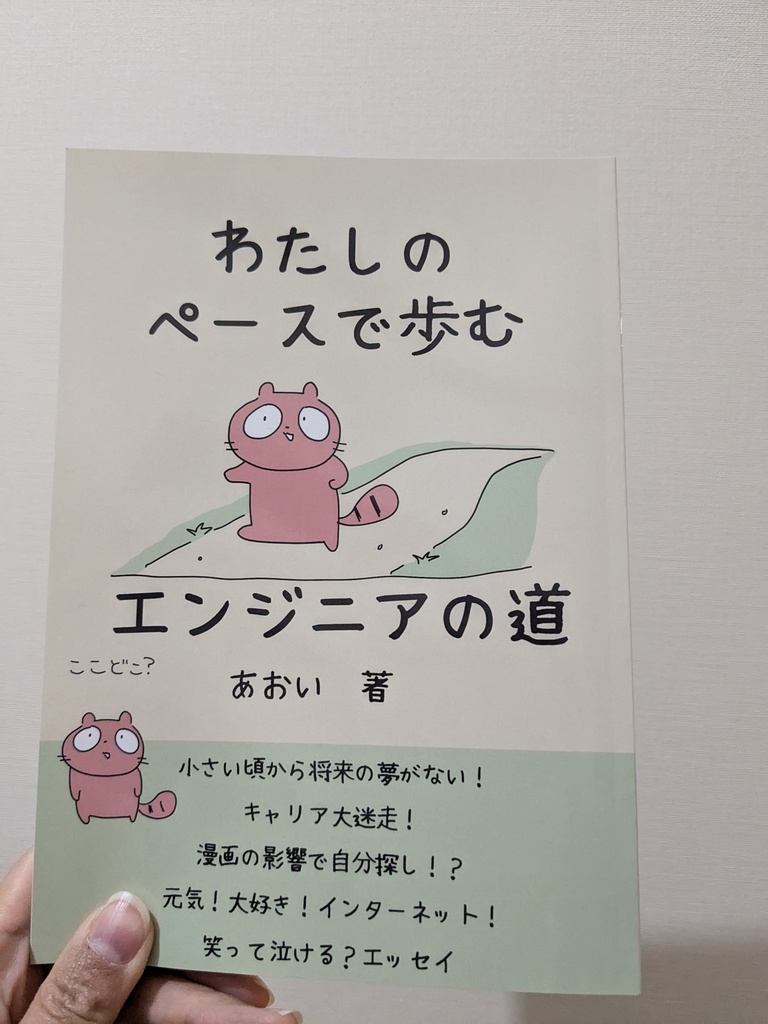 わたしの
ペースで歩む
エンジニアの道
あおい 著
ここどこ?
小さい頃から将来の夢がない!
キャリア大迷走!
漫画の影響で自分探し!?
元気!大好き!インターネット!
笑って泣ける?エッセイ